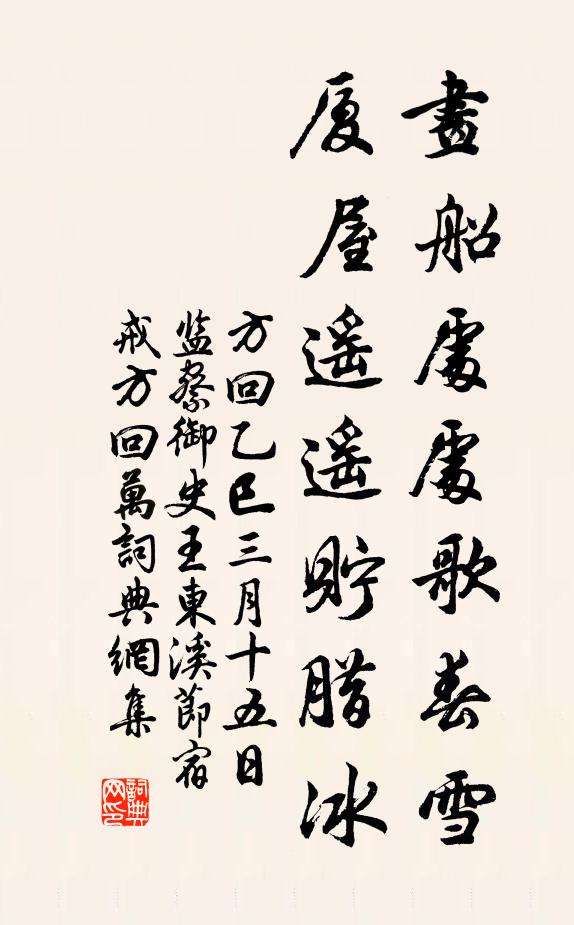 畫船處處歌春雪
厦屋遥遥貯腊冰
方回乙巳三月十五日
監察御史王東溪節宿
戒方回萬詞典網集
詞典网印